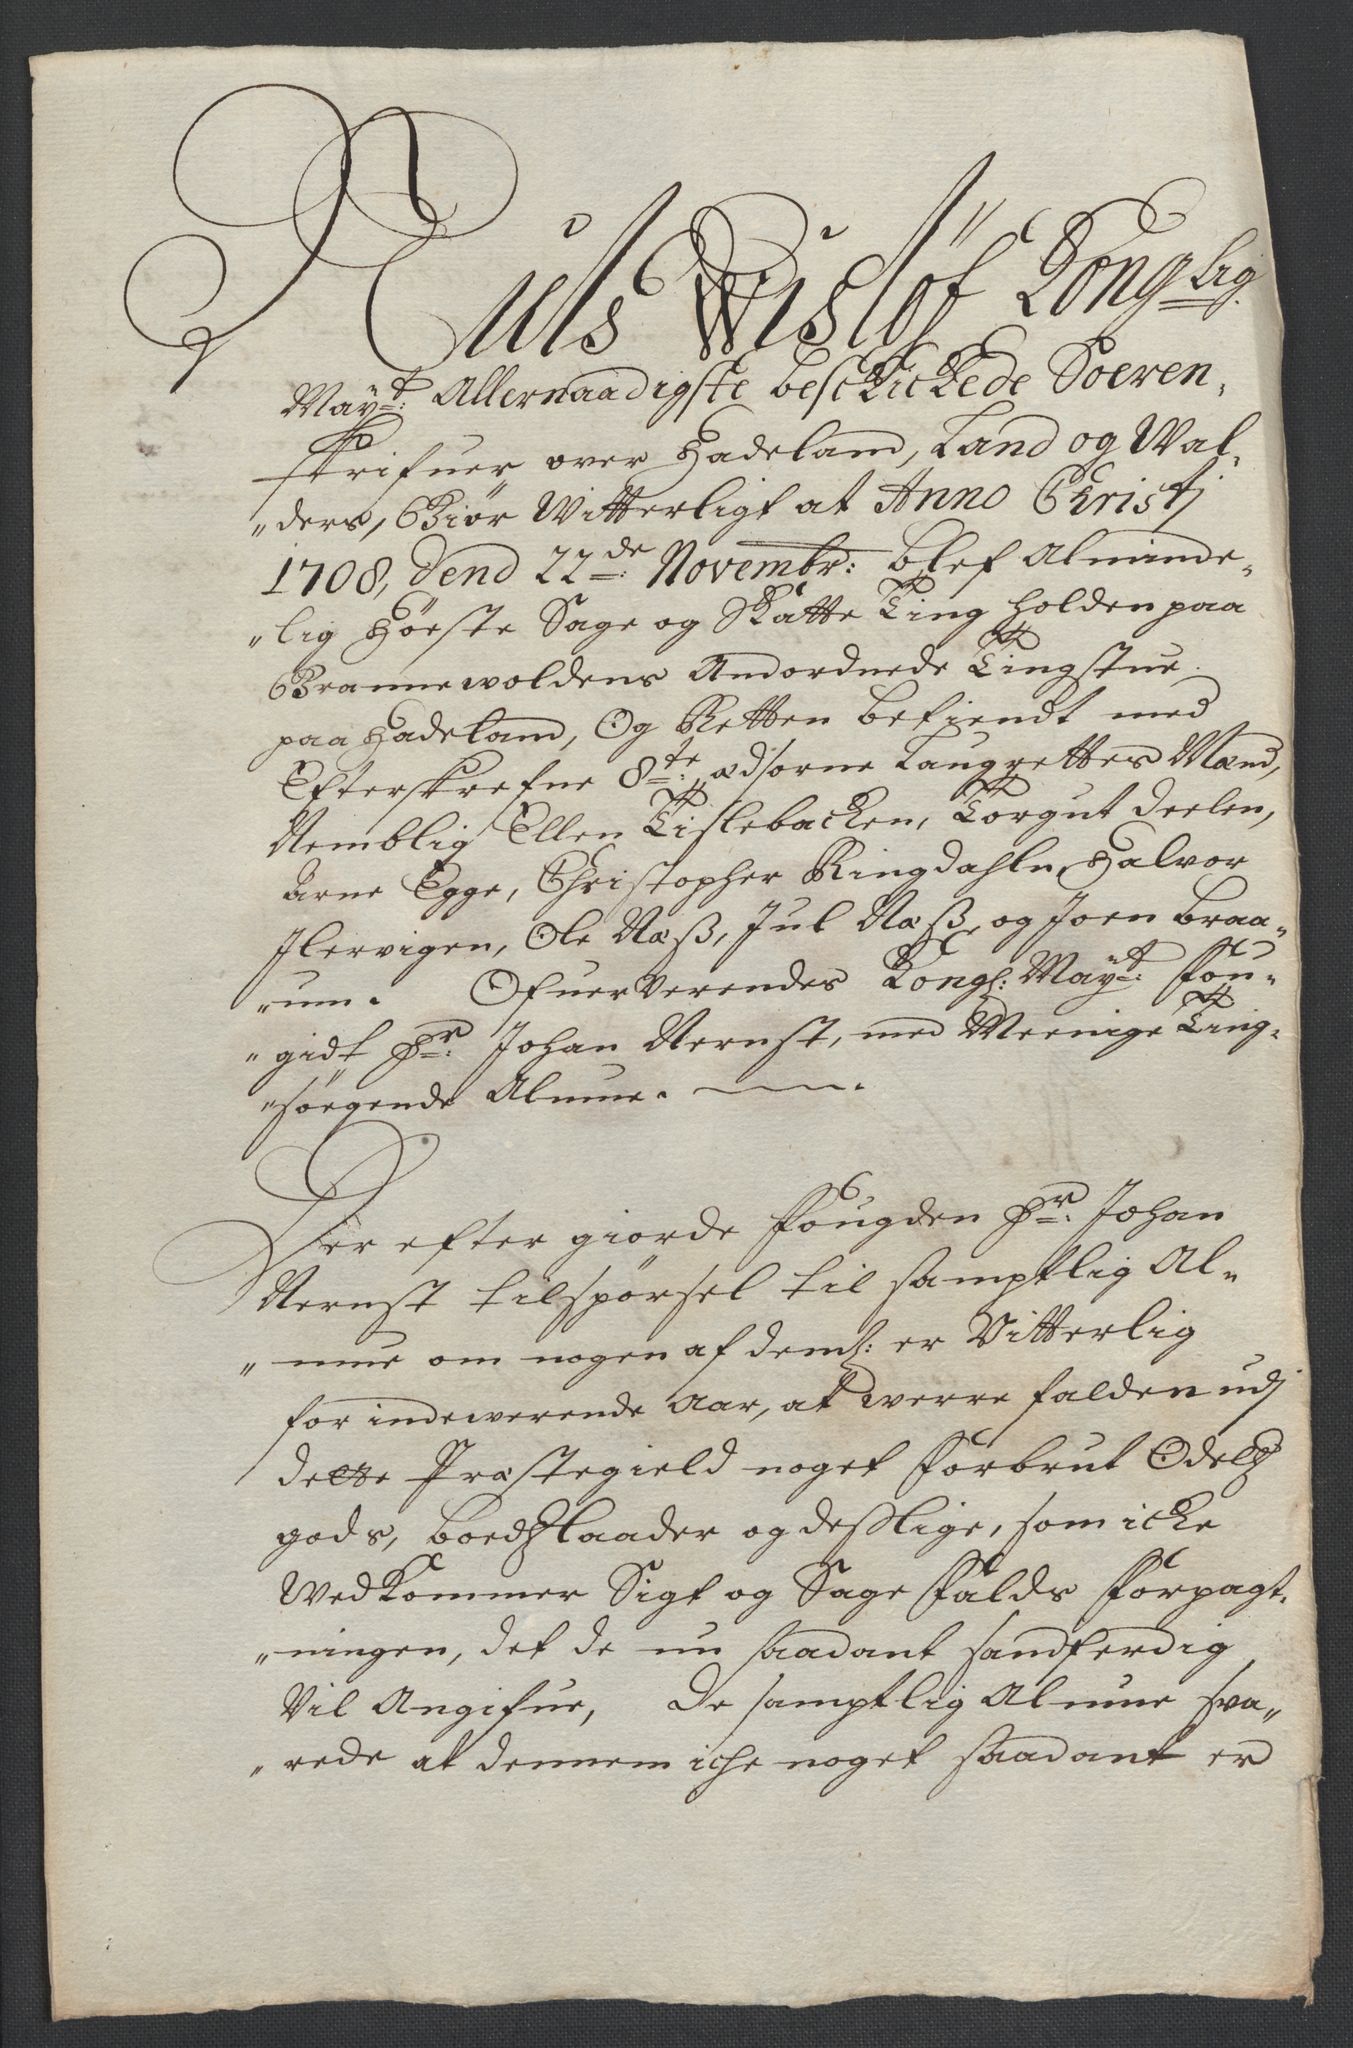 Auls Wislöf Konglig
Mayt: Allernaadigste beskickede Soeren,
skrifuer over Hadeland, Land og Wal,
"ders, Giör Witterligt at Anno Christj
1708, dend 22de: Novembr: blef Alminde,
"lig Höeste Sage og Skatte Ting holden paa
Grannewoldens Anordnede Tingstue
paa Hadeland, Og Retten betiendt med
Efterskrefne 8te: ædsorne Laugrettes Mænd,
Nemblig Ellen Tislebacken, Torgut Deelen,
Arne Egge, Christopher Ringdahln, Halvor
Flervigen, Ole Næss, Jul Næss, og Joen Braa,
"um. Ofuerverendes Kongl: Mayt: Fou,
"gidt Hr: Johan Nernst, med Meenige Ting,
"söegende Almue.
Der efter giorde Fougden Hr: Johan
Nernst tilspörsel til samptlig Al,
"mue om nogen af deml: er Vitterlig
for indewerende Aar, at werre falden udj
dette Præstegield noget forbrut Odelss
gods, boedsslaader og desslige, som icke
Wedkommer Sigt og Sage Falds Forpagt,
"ningen, det de nu saadant sandferdig
Vil Angifue, De samptlig Almue sva,
"rede at dennem iche noget saadant er